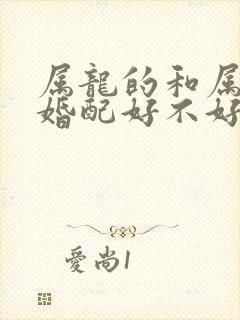 属龍的和属
婚配好不好
愛尚1